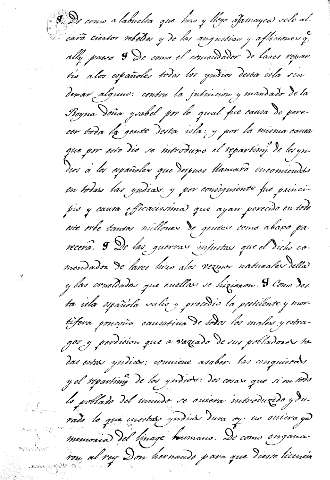 §. De como a la buelta que hizo y llego a Jamayca se le al
caro ciertos rebeldes y de las angustias y afflictiones q̃
ally passo § de como el comendador de lares repar
tio a los españoles todos los yndios desta ysla sin
dexar alguno: contra la intencion y mandado de la
Reyna doña ysabel por lo qual fue causa de pere-
cer toda la gente desta isla; y por la misma causa
que por esto dio se introduxo el repartimº de los yn-
dios á los españoles que despues llamarõ encomiendas
en todas las yndias, y por consiguiente fue princi-
pio y causa eficacissima que ayan perecido en todo
este orbe tantos millones de gentes como abaxo pa-
recerá. § De las guerras injustas que el dicho co-
mendador de lares hizo a los vezinos naturales della
y las crueldades que en ellas se hizieron. § Como des-
ta isla española salio y procedio la pestilente y mor-
tifera ponçoña causativa de todos los males y estra-
gos y perdicion que a vaziado de sus pobladores to
das estas yndias: conviene a saber, las conquistas
y el repartimº de los yndios: dos cosas que si en todo
lo poblado del mundo se oviera introduzido y du-
rado lo que en estas yndias dura oy, no oviera ya
memoria del linage humano. De como engaña-
ron al rey Don hernando para que diesse licencia